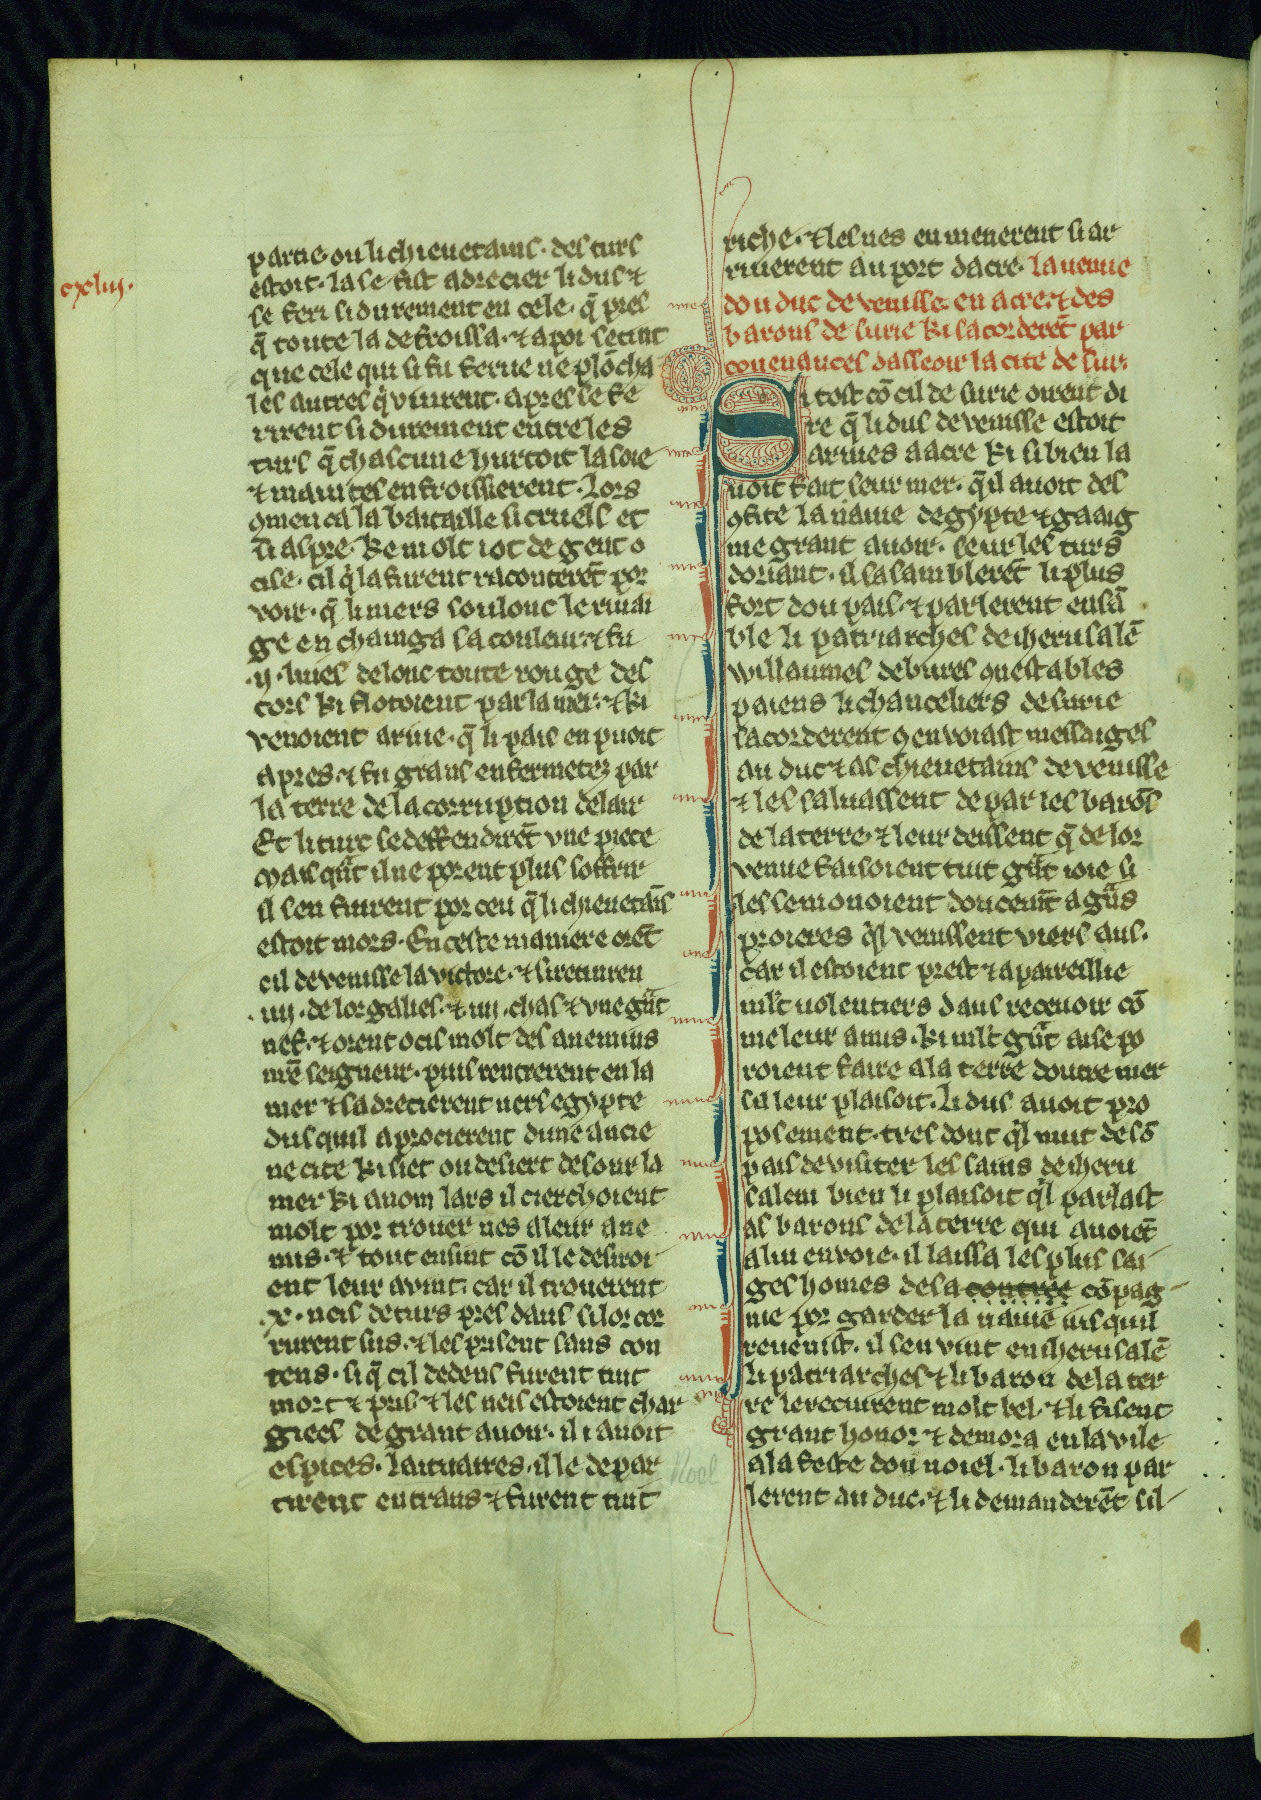 cxluj.
partie. ou li chieuetains. des turs
estoit. la se fist adrecier li dus ⁊
se feri si durement en cele. q̄ pres
q̄ toute la defroissa. ⁊ a poi se tint
que cele qui si fu ferue ne plōcha
les autres q̇ viurent. apres se fe
rirent si durement entre les
turs q̄ chascune hurtoit la soie
⁊ maintes en froissierent. Lors
9menca la bataille si cruels et
si aspre. ke molt i ot de gent o
cise. cil q̇ la furent raconterēt por
voir. q̄ li mers soulonc le riuai
ge en chainga sa couleur. ⁊ fu
.ij. liues de lonc toute rouge des
cors ki flotoient par la mer. ⁊ ki
venoient a riue. q̄ li pais en puoit
apres. ⁊ fu grans enfermetez par
la terre de la corruption de lair
Et li turc se deffendirēt vne piece
Mais quāt il ne porent plus soffrir
il sen fuirent por ceu q̄ li chieuetāis
estoit mors. En ceste maniere orēt
cil de venisse la victore. ⁊ si retinren
.iiij. de lor galies. ⁊ .iiij. chas ⁊ vne gāt
nef. ⁊ orent ocis molt des anemins
nr̄e seigneur. puis rentrerent en la
mer ⁊ sadrecierent uers egypte
dusquil aprocierent dune ancie
ne cite ki siet ou desiert desour la
mer ki a nom lars il cierchoient
molt por trouer nes a leur ane
mis. ⁊ tout ensint cō il le desiroi
ent leur auint. car il trouerent
.x. neis de turs pres daus si lor cor
rurent sus. ⁊ les prisent sans con
tens. si q̄ cil dedens furent tuit
mort ⁊ pris. ⁊ les neis estoient char
giees de grant auoir. il i auoit
espices. laituaires. il le depar
tirent entraus ⁊ furent tuit
Noel
riche. ⁊ les nes en menerent si ar
riuerent au port dacre. la uenue
dou duc de venisse. en acre. ⁊ des
barons de surie ki sacorderēt par
couenances dasseoir la cite de sur.
Si tost cō cil de surie oirent di
re q̄ li dus de venisse estoit
arriues a acre ki si bien la
uoit fait seur mer. q̄l auoit des
9fite la nauie degypte ⁊ gaaig
nie grant auoir. seur les turs
doriant. il sasamblerēt li plus
fort dou pais. ⁊ parlerent ensā
ble li patriarches de iherusalē
Willaumes de bures 9nestables
paiens li chanceliers de surie
sacorderent 9 envoiast messaiges
au duc ⁊ as chieuetains de venisse
⁊ les saluassent de par les barōs
de la terre. ⁊ leur deissent q̄ de lor
venue faisoient tuit gāt ioie si
les semonoient doucemt̄ a gr̄as
proieres q̇l venissent viers aus.
car il estoient prest ⁊ apareillie
mlt̄ uolentiers daus receuoir cō
me leur amis. ki mlt̄ gāt aise po
roient faire a la terre doutre mer
sil leur plaisoit. li dus auoit pro
posement. tres dont q̇l muit de sō
pais de visiter les sains de iheru
salem bien li plaisoit q̇l parlast
as barons de la terre qui auoiēt
a lui envoie. il laissa les plus sai
ges homes de sa contree cōpag
nie por garder la nauie iusquil
reuenist. il sen vint en iherusalē
li patriarches ⁊ li baron de la ter
re le recuirent molt bel. ⁊ li fisent
grant honor ⁊ demora en la vile
a la feste dou noiel. li baron par
lerent au duc. ⁊ li demanderēt sil